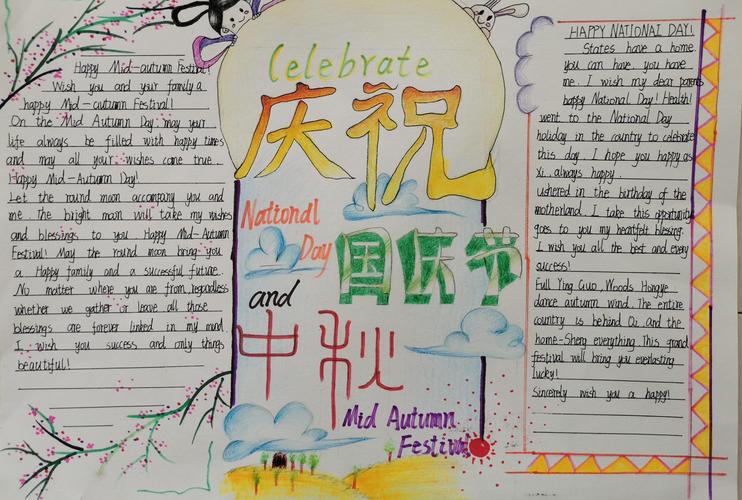 Happy Mid-autumn Festival!
Wish you and your family a
happy Mid-autumn Festival!
On the Mid Autumn Day, may your
life always be filled with happy times
and may all your wishes come true.
Happy Mid-Autumn Day!
Let the round moon accompany you and
me. The bright moon will take my wishes
and blessings to you. Happy Mid-Autumn
Festival! May the round moon bring you
a Happy family and a successful future.
No matter where you are from, regardless
whether we gather or leave all those
blessings are forever linked in my mind.
I wish you success and only things
beautiful!
Celebrate
庆祝
National
Day
国庆节
and
中秋
Mid Autumn
Festival
HAPPY NATIONAL DAY!
States have a home.
you can have, you have
me. I wish my dear parents
happy National Day! Health!
went to the National Day
holiday in the country to celebrate
this day. I hope you happy as
xi, always happy.
ushered in the birthday of the
motherland. I take this opportunity
goes to you my heartfelt blessing.
I wish you all the best and every
success!
Full Ying Guo, Woods Hongye
dance autumn wind. The entire
country is behind Qi, and the
home-Sheng everything. This grand
festival will bring you everlasting
lucky!
Sincerely wish you a happy!